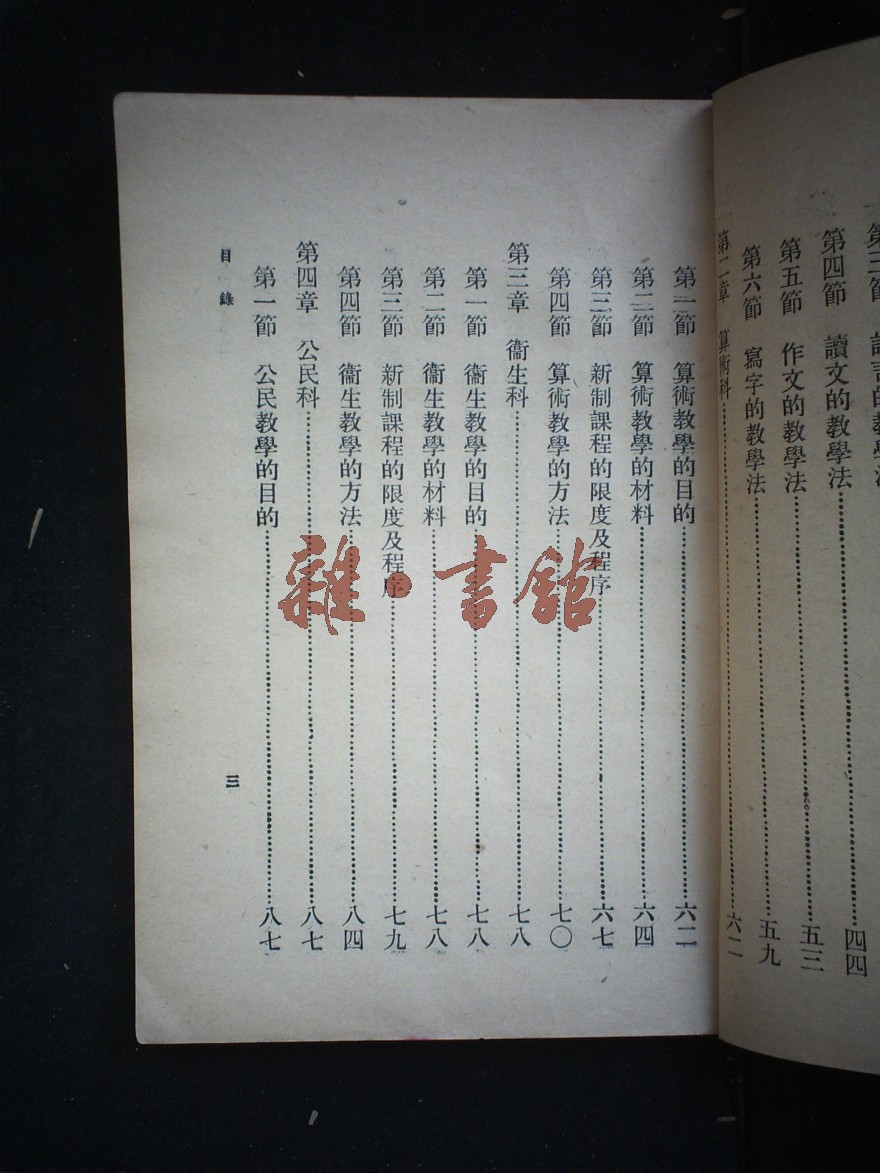 第四節　讀文的教學法……四四
第五節　作文的教學法……五三
第六節　寫字的教學法……五九
第二章　算術科……六二
第一節　算術教學的目的……六二
第二節　算術教學的材料……六四
第三節　新制課程的限度及程序……六七
第四節　算術教學的方法……七〇
第三章　衞生科……七八
第一節　衞生教學的目的……七八
第二節　衞生教學的材料……七八
第三節　新制課程的限度及程序……七九
第四節　衞生教學的方法……八四
第四章　公民科……八七
第一節　公民教學的目的……八七
目錄
三
雜·書館